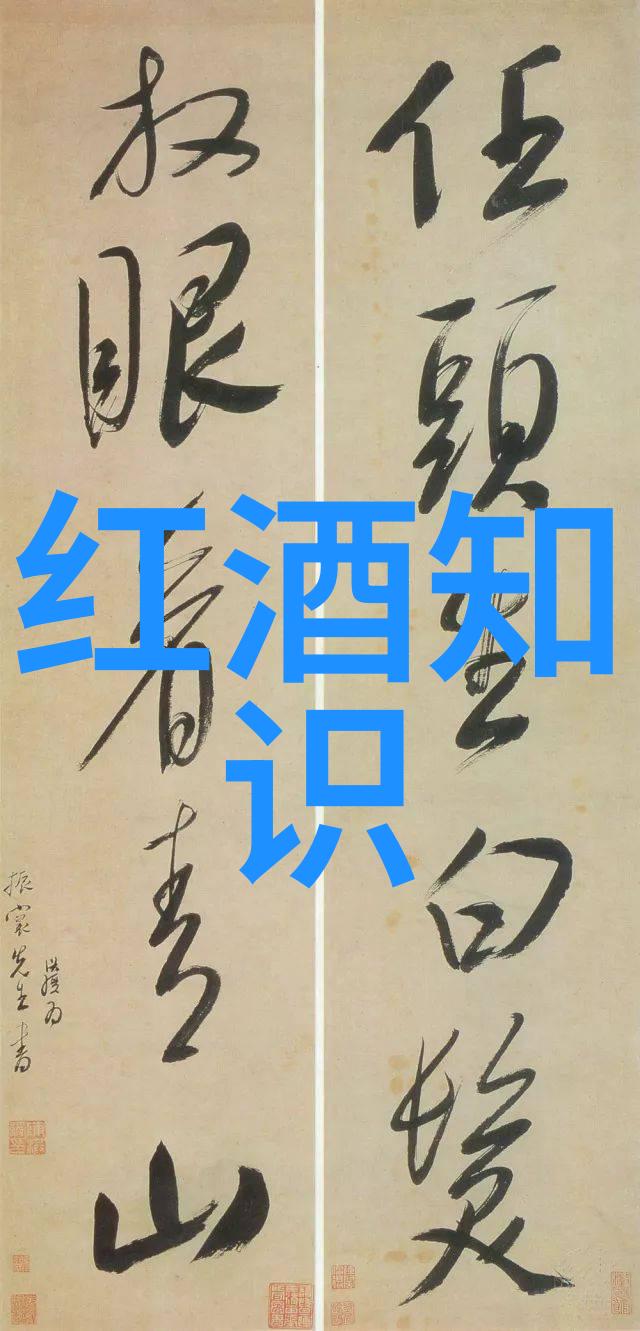 任頭生白髮
放眼看青山
振裳先生書
红酒知
识